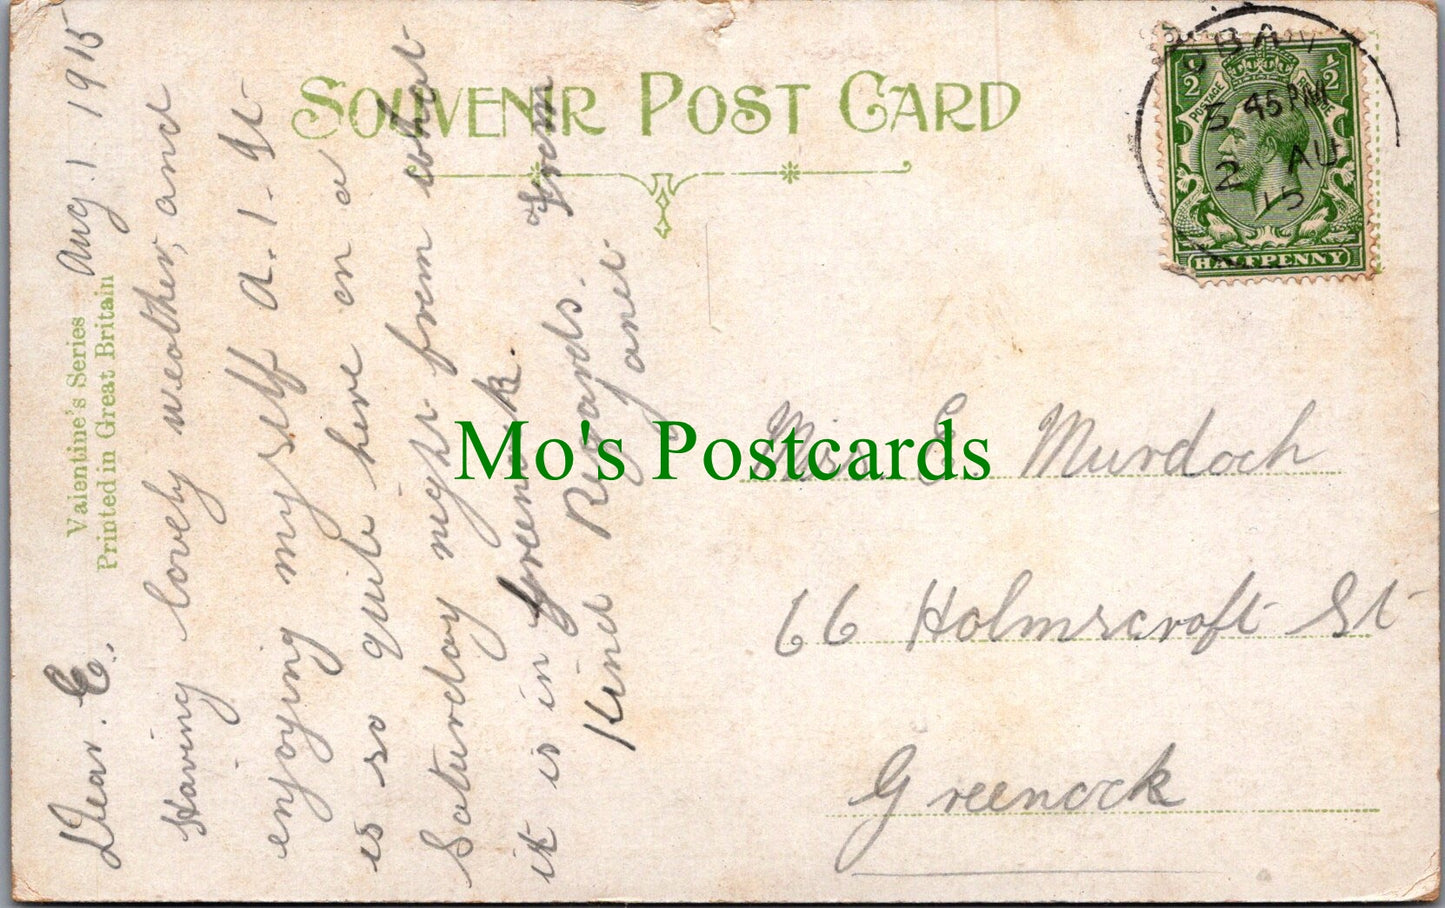 SOUVENIR POST CARD
Valentine's Series
Printed in Great Britain
Aug 1. 1915
Dear. E.,
Having lovely weather, and
enjoying my self A.1. It
is so quite here on a
Saturday night from what
it is in Greenock.
Kind Regards. From
Janet.
OBAN
5 45 PM
2 AU
15
½ ½
POSTAGE REVENUE
HALFPENNY
Mo's Postcards
Miss E. Murdoch
66 Holmscroft St
Greenock